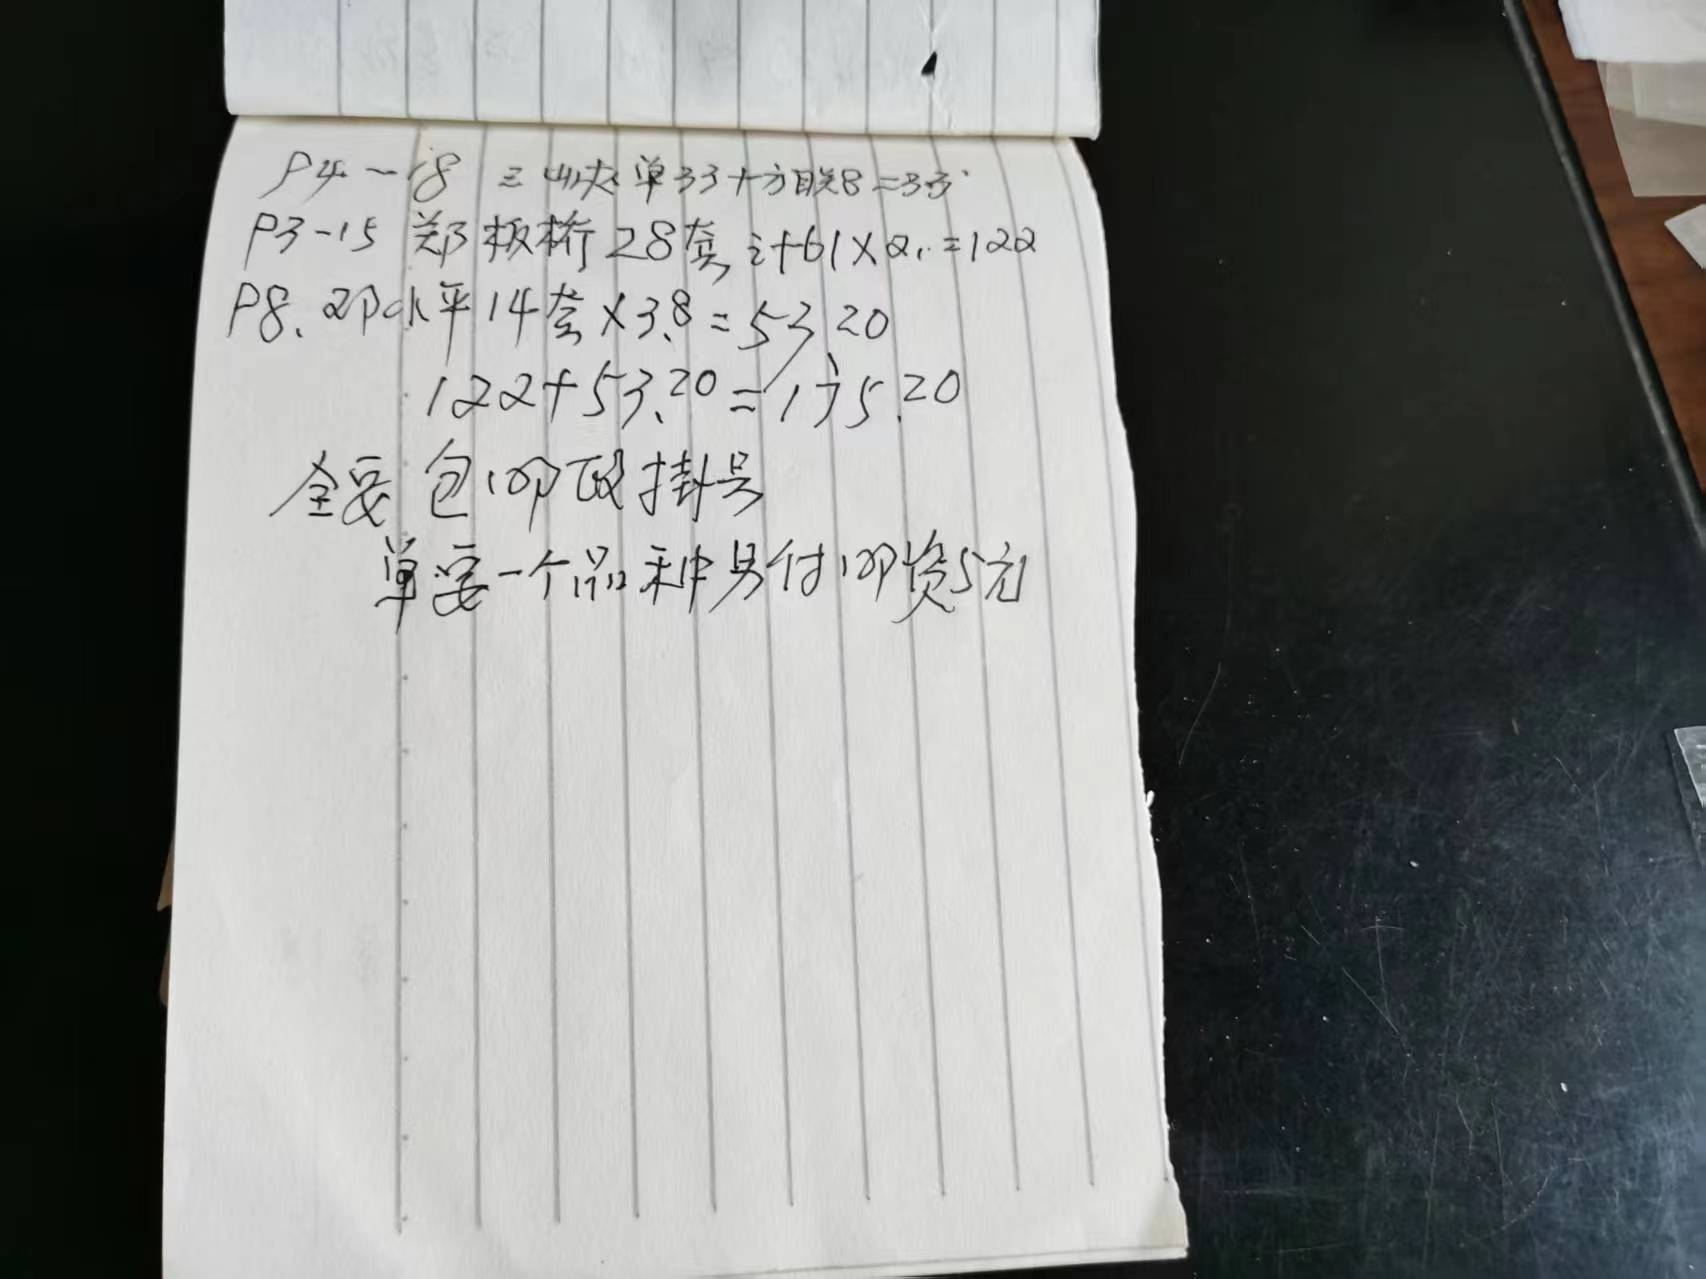 P4-18 三山夫单33+方联8=33
P3-15 郑板桥28套 计61×2.=122
P8. 邓小平14套×3.8=53.20
122+53.20=175.20
全要包邮政挂号
单要一个品种另付邮资5元